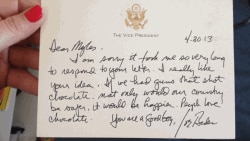 THE VICE PRESIDENT
4/30 2013
Dear Myles.
I am sorry it took me so very long
to respond to your letter. I really like
your idea. If we had guns that shot
chocolate, not only would our country
be safer, it would be happier. People love
chocolate.
You are a good boy, Joe Biden